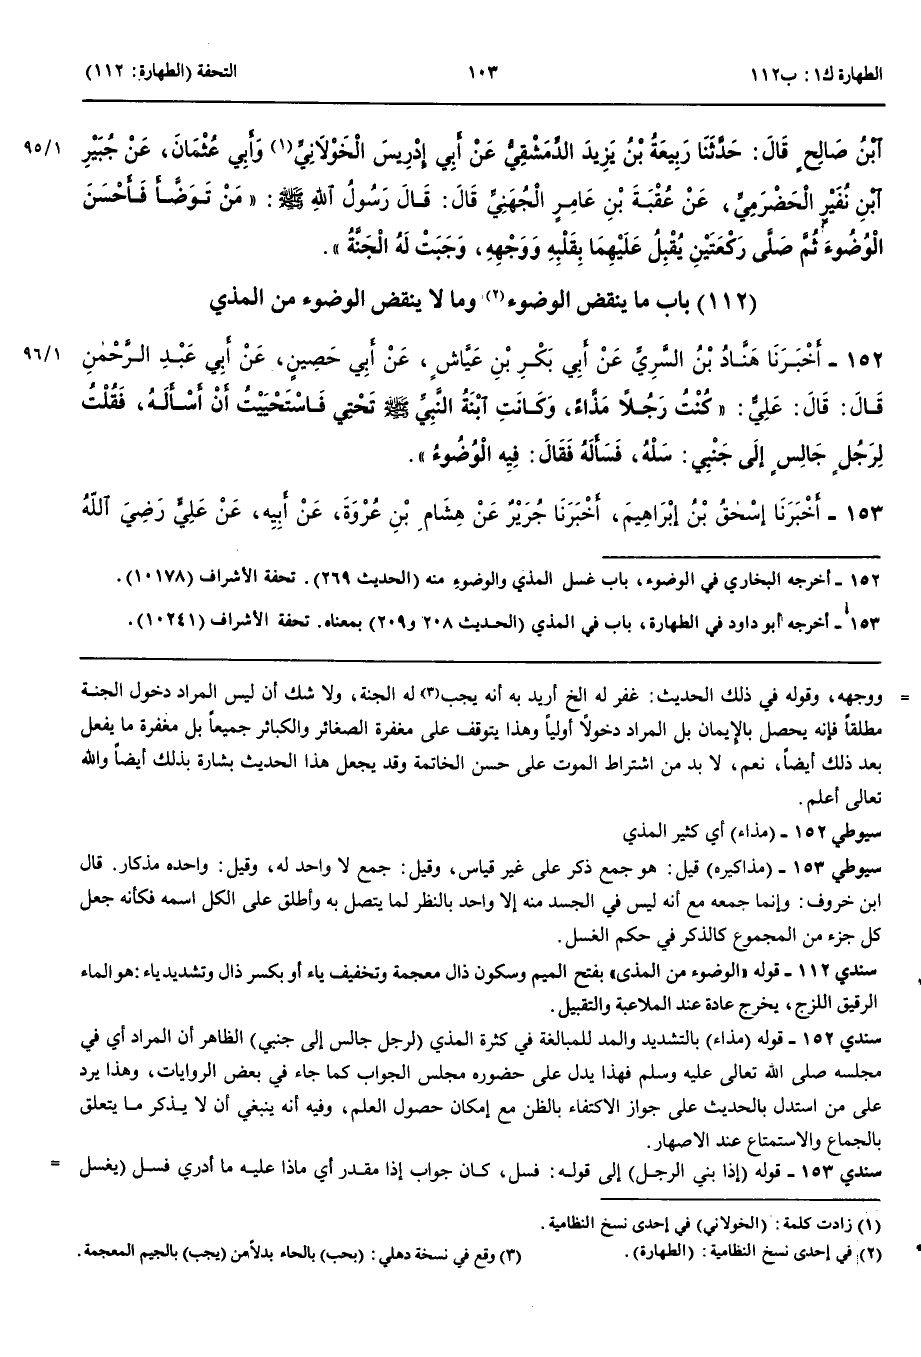 الطهارة ك١: ب١١٢ ١٠٣ التحفة (الطهارة: ١١٢)
ٱبْنُ صَالِحٍ قَالَ: حَدَّثَنَا رَبِيعَةُ بْنُ يَزِيدَ الدِّمَشْقِيُّ عَنْ أَبِي إِدْرِيسَ الْخَوْلَانِيِّ(١) وَأَبِي عُثْمَانَ، عَنْ جُبَيْرِ ٩٥/١
ٱبْنِ نُفَيْرٍ الْحَضْرَمِيِّ، عَنْ عُقْبَةَ بْنِ عَامِرٍ الْجُهَنِيِّ قَالَ: قَالَ رَسُولُ ٱللهِ ﷺ: «مَنْ تَوَضَّأَ فَأَحْسَنَ
الْوُضُوءَ ثُمَّ صَلَّى رَكْعَتَيْنِ يُقْبِلُ عَلَيْهِمَا بِقَلْبِهِ وَوَجْهِهِ، وَجَبَتْ لَهُ الْجَنَّةُ».
(١١٢) باب ما ينقض الوضوء(٢) وما لا ينقض الوضوء من المذي
١٥٢ - أَخْبَرَنَا هَنَّادُ بْنُ السَّرِيِّ عَنْ أَبِي بَكْرِ بْنِ عَيَّاشٍ، عَنْ أَبِي حَصِينٍ، عَنْ أَبِي عَبْدِ الرَّحْمٰنِ ٩٦/١
قَالَ: قَالَ: عَلِيٌّ: «كُنْتُ رَجُلًا مَذَّاءً، وَكَانَتِ ٱبْنَةُ النَّبِيِّ ﷺ تَحْتِي فَاسْتَحْيَيْتُ أَنْ أَسْأَلَهُ، فَقُلْتُ
لِرَجُلٍ جَالِسٍ إِلَى جَنْبِي: سَلْهُ، فَسَأَلَهُ فَقَالَ: فِيهِ الْوُضُوءُ».
١٥٣ - أَخْبَرَنَا إِسْحٰقُ بْنُ إِبْرَاهِيمَ، أَخْبَرَنَا جَرِيْرٌ عَنْ هِشَامِ بْنِ عُرْوَةَ، عَنْ أَبِيهِ، عَنْ عَلِيٍّ رَضِيَ ٱللَّهُ
١٥٢ - أخرجه البخاري في الوضوء، باب غسل المذي والوضوء منه (الحديث ٢٦٩). تحفة الأشراف (١٠١٧٨).
١٥٣ - أخرجه أبو داود في الطهارة، باب في المذي (الحديث ٢٠٨ و٢٠٩) بمعناه. تحفة الأشراف (١٠٢٤١).
= ووجهه، وقوله في ذلك الحديث: غفر له الخ أريد به أنه يجب(٣) له الجنة، ولا شك أن ليس المراد دخول الجنة
مطلقاً فإنه يحصل بالإيمان بل المراد دخولاً أولياً وهذا يتوقف على مغفرة الصغائر والكبائر جميعاً بل مغفرة ما يفعل
بعد ذلك أيضاً، نعم، لا بد من اشتراط الموت على حسن الخاتمة وقد يجعل هذا الحديث بشارة بذلك أيضاً والله
تعالى أعلم.
سيوطي ١٥٢ - (مذاء) أي كثير المذي
سيوطي ١٥٣ - (مذاكيره) قيل: هو جمع ذكر على غير قياس، وقيل: جمع لا واحد له، وقيل: واحده مذكار. قال
ابن خروف: وإنما جمعه مع أنه ليس في الجسد منه إلا واحد بالنظر لما يتصل به وأطلق على الكل اسمه فكأنه جعل
كل جزء من المجموع كالذكر في حكم الغسل.
سندي ١١٢ - قوله «الوضوء من المذى» بفتح الميم وسكون ذال معجمة وتخفيف ياء أو بكسر ذال وتشديد ياء: هو الماء
الرقيق اللزج، يخرج عادة عند الملاعبة والتقبيل.
سندي ١٥٢ - قوله (مذاء) بالتشديد والمد للمبالغة في كثرة المذي (لرجل جالس إلى جنبي) الظاهر أن المراد أي في
مجلسه صلى الله تعالى عليه وسلم فهذا يدل على حضوره مجلس الجواب كما جاء في بعض الروايات، وهذا يرد
على من استدل بالحديث على جواز الاكتفاء بالظن مع إمكان حصول العلم، وفيه أنه ينبغي أن لا يذكر ما يتعلق
بالجماع والاستمتاع عند الاصهار.
سندي ١٥٣ - قوله (إذا بني الرجل) إلى قوله: فسل، كان جواب إذا مقدر أي ماذا عليه ما أدري فسل (يغسل =
(١) زادت كلمة: (الخولاني) في إحدى نسخ النظامية.
(٢) في إحدى نسخ النظامية: (الطهارة). (٣) وقع في نسخة دهلي: (يحب) بالحاء بدلاً من (يجب) بالجيم المعجمة.